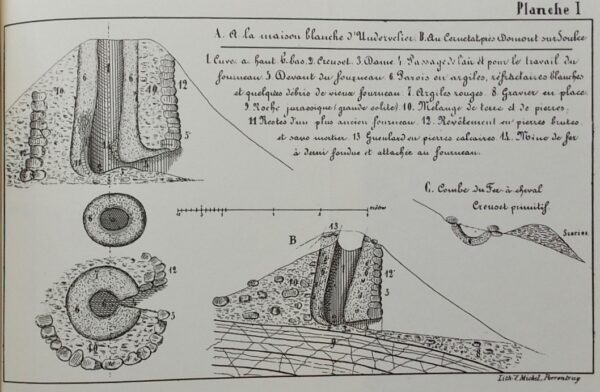 Planche I
A. A la maison blanche d'Undervelier. B. Au Cernetat, près Domont sur Soulce
1. Cuve. a. haut b. bas. 2. Creuset. 3. Dame. 4. Passage de l'air et pour le travail du
fourneau. 5. Devant du fourneau. 6. Parois en argiles, réfractaires blanches
et quelques débris de vieux fourneau. 7. Argiles rouges. 8. Gravier en place.
9. Roche jurassique (grande oolite). 10. Mélange de terre et de pierres.
11. Restes d'un plus ancien fourneau. 12. Revêtement en pierres brutes
et sans mortier. 13. Gueulard en pierres calcaires. 14. Mine de fer
à demi fondue et attachée au fourneau.
C. Combe du Fer à cheval
Creuset primitif
Scories
B
13
12
5
9
10
6
1
6
10
12
5
12
5
10
Lith. V. Michel, Porrentruy